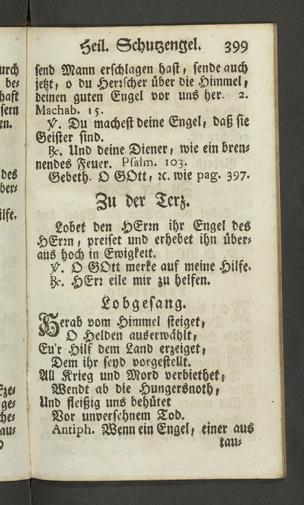 Heil. Schutzengel. 399
send Mann erschlagen hast, sende auch
jetzt, o du Herrscher über die Himmel,
deinen guten Engel vor uns her. 2.
Machab. 15.
℣. Du machest deine Engel, daß sie
Geister sind.
℟. Und deine Diener, wie ein bren-
nendes Feuer. Psalm. 103.
Gebeth. O GOtt, ꝛc. wie pag. 397.
Zu der Terz.
Lobet den HErrn ihr Engel des
HErrn, preiset und erhebet ihn über-
aus hoch in Ewigkeit.
℣. O GOtt merke auf meine Hilfe.
℟. HErr eile mir zu helfen.
Lobgesang.
Herab vom Himmel steiget,
O Helden auserwählt,
Eu'r Hilf dem Land erzeiget,
Dem ihr seyd vorgestellt.
All Krieg und Mord verbiethet,
Wendt ab die Hungersnoth,
Und fleißig uns behütet
Vor unversehnem Tod.
Antiph. Wenn ein Engel, einer aus
tau-